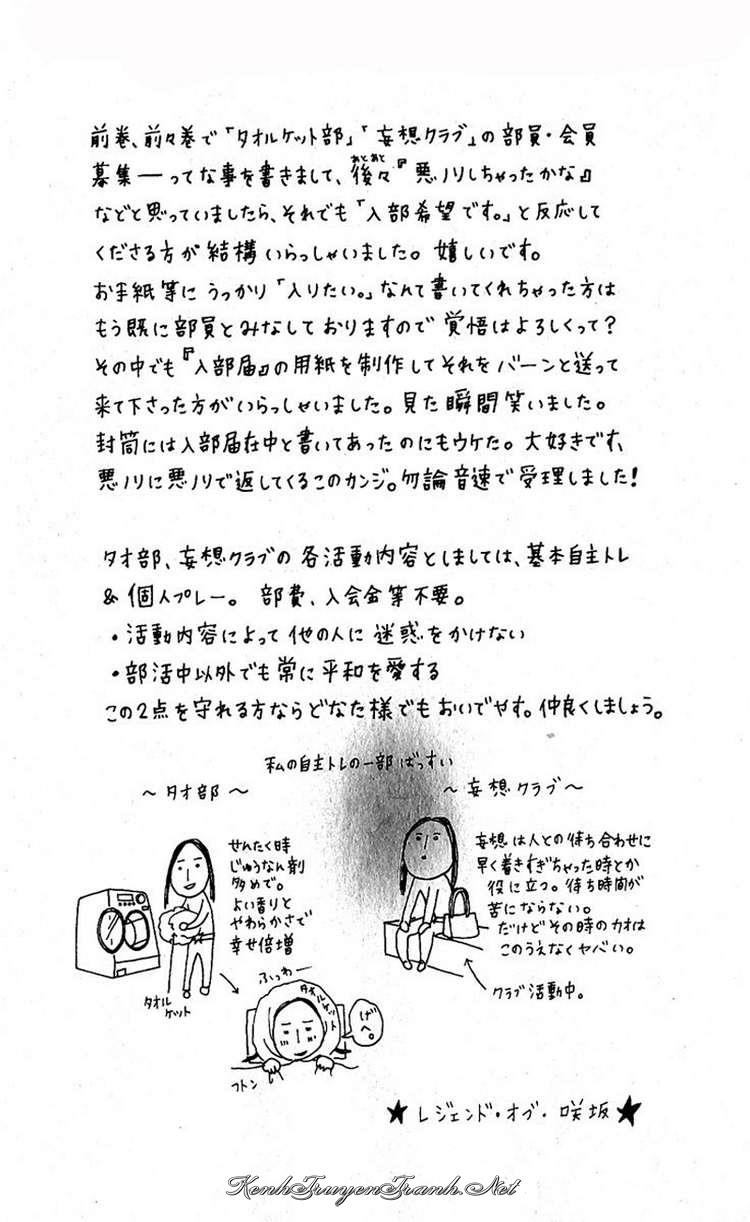 前巻、前々巻で「タオルケット部」「妄想クラブ」の部員・会員
募集——ってな事を書きまして、後々『悪ノリしちゃったかな』
あとあと
などと思っていましたら、それでも「入部希望です。」と反応して
くださる方が結構いらっしゃいました。嬉しいです。
お手紙等にうっかり「入りたい。」なんて書いてくれちゃった方は
もう既に部員とみなしておりますので覚悟はよろしくって?
その中でも『入部届』の用紙を制作してそれをバーンと送って
来て下さった方がいらっしゃいました。見た瞬間笑いました。
封筒には入部届在中と書いてあったのにもウケた。大好きです、
悪ノリに悪ノリで返してくるこのカンジ。勿論音速で受理しました!
タオ部、妄想クラブの各活動内容としましては、基本自主トレ
&個人プレー。 部費、入会金等不要。
・活動内容によって他の人に迷惑をかけない
・部活中以外でも常に平和を愛する
この2点を守れる方ならどなた様でもおいでやす。仲良くしましょう。
私の自主トレの一部ばっすい
〜タオ部〜
せんたく時
じゅうなん剤
多めで。
よい香りと
やわらかさで
幸せ倍増
タオル
ケット
ふっわー
タオルケット
げへ。
フトン
〜妄想クラブ〜
妄想は人との待ち合わせに
早く着きすぎちゃった時とか
役に立つ。待ち時間が
苦にならない。
だけどその時のカオは
このうえなくヤバい。
クラブ活動中。
★レジェンド・オブ・咲坂★
KenhTruyenTranh.Net